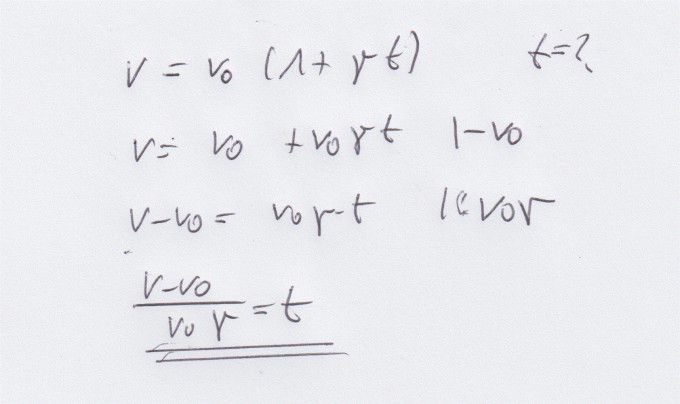 v = v₀ (1 + γ t) t = ?
v = v₀ + v₀ γ t | - v₀
v - v₀ = v₀ γ t | : v₀ γ
v - v₀
v₀ γ = t